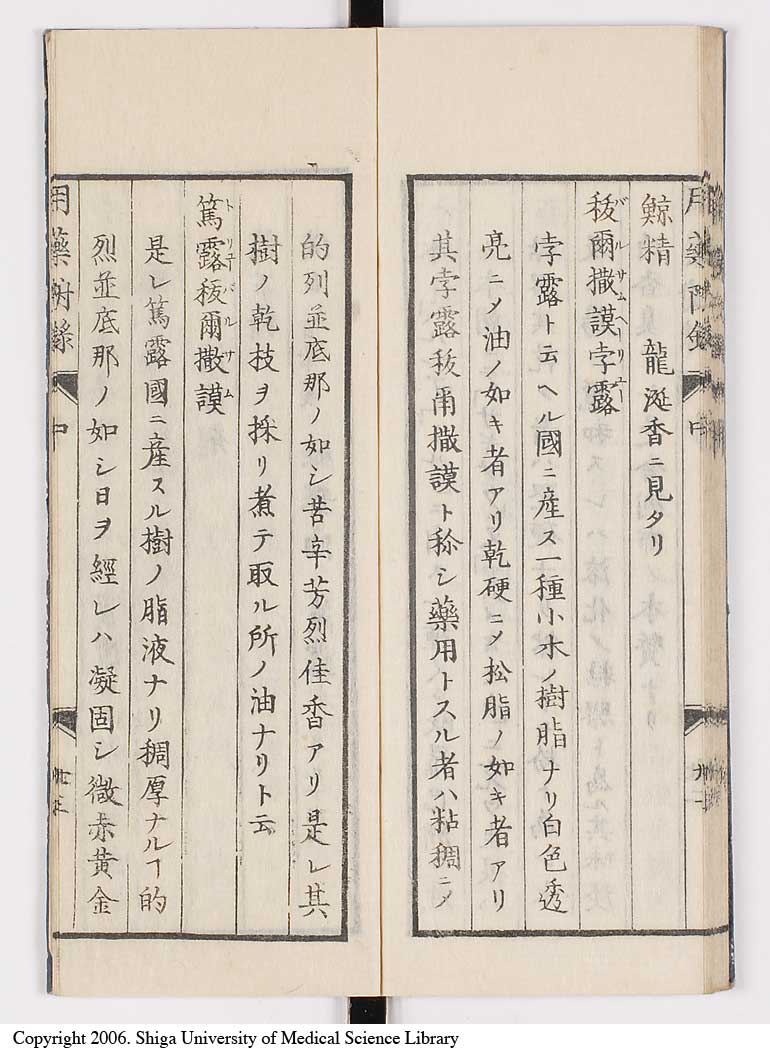 鯨精　龍涎香ニ見タリ
秡爾撒謨孛露
バルサムヘーリュー
孛露ト云ヘル國ニ産ス一種小木ノ樹脂ナリ白色透
亮ニ〆油ノ如キ者アリ乾硬ニ〆松脂ノ如キ者アリ
其孛露秡爾撒謨ト称シ藥用トスル者ハ粘稠ニ〆
的列並底那ノ如シ苦辛芳烈佳香アリ是レ其
樹ノ乾枝ヲ採リ煮テ取ル所ノ油ナリト云
篤露秡爾撒謨
トリューバルサム
是レ篤露國ニ産スル樹ノ脂液ナリ稠厚ナルヿ的
烈並底那ノ如シ日ヲ經レハ凝固シ微赤黄金
用藥附録
中
Copyright 2006. Shiga University of Medical Science Library